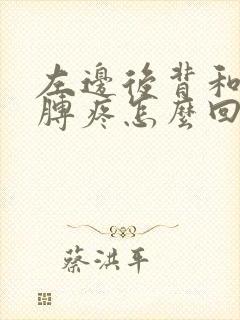 左邊後背和
膊疼怎麼回
蔡洪平